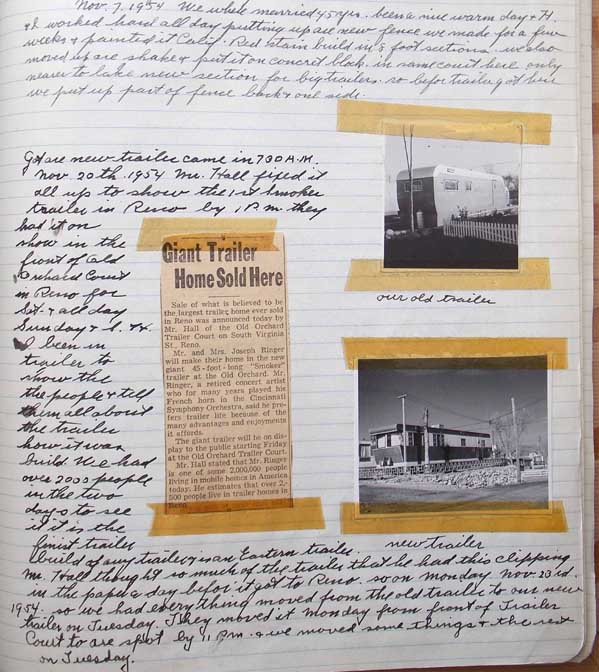 Nov. 7. 1954 We where married 45 yrs. been a nice warm day & H.
& I worked hard all day putting up are new fence we made for a few
weeks & painted it Calif. Red stain build in 8 foot sections. we also
moved up are shake & put it on concret block. in same court here only
nearer to lake new section for big trailers. so befor trailer got here
we put up part of fence back & one side.
Got are new trailer came in 7:30 A.M.
Nov. 20th. 1954 Mr. Hall fixed it
all up to show the 1st Smoker
trailer in Reno by 1 P.M. they
had it on
show in the
front of Old
Orchard Court
in Reno for
Sat. & all day
Sunday & I. & H.
I been in
trailer to
show the
the people & tell
them all about
the trailer
how it was
build. We had
over 2000 people
in the two
days to see
it it is the
finist trailer
build of any trailer & is an Eastern trailer.
Mr. Hall thought so much of the trailer that he had this clipping
in the paper a day befor it got to Reno. so on monday Nov. 23rd.
1954. so we had everything moved from the old trailer to our new
trailer on Tuesday. They moved it Monday from front of Trailer
Court to are spot by 1 P.M. & we moved some things & the rest
on Tuesday.
Giant Trailer
Home Sold Here
Sale of what is believed to be
the largest trailer home ever sold
in Reno was announced today by
Mr. Hall of the Old Orchard
Trailer Court on South Virginia
St., Reno.
Mr. and Mrs. Joseph Ringer
will make their home in the new
giant 45-foot-long "Smoker"
trailer at the Old Orchard. Mr.
Ringer, a retired concert artist
who for many years played his
French horn in the Cincinnati
Symphony Orchestra, said he pre-
fers trailer life because of the
many advantages and enjoyments
it affords.
The giant trailer will be on dis-
play to the public starting Friday
at the Old Orchard Trailer Court.
Mr. Hall stated that Mr. Ringer
is one of some 2,000,000 people
living in mobile homes in America
today. He estimates that over 2,-
500 people live in trailer homes in
Reno
our old trailer
new trailer